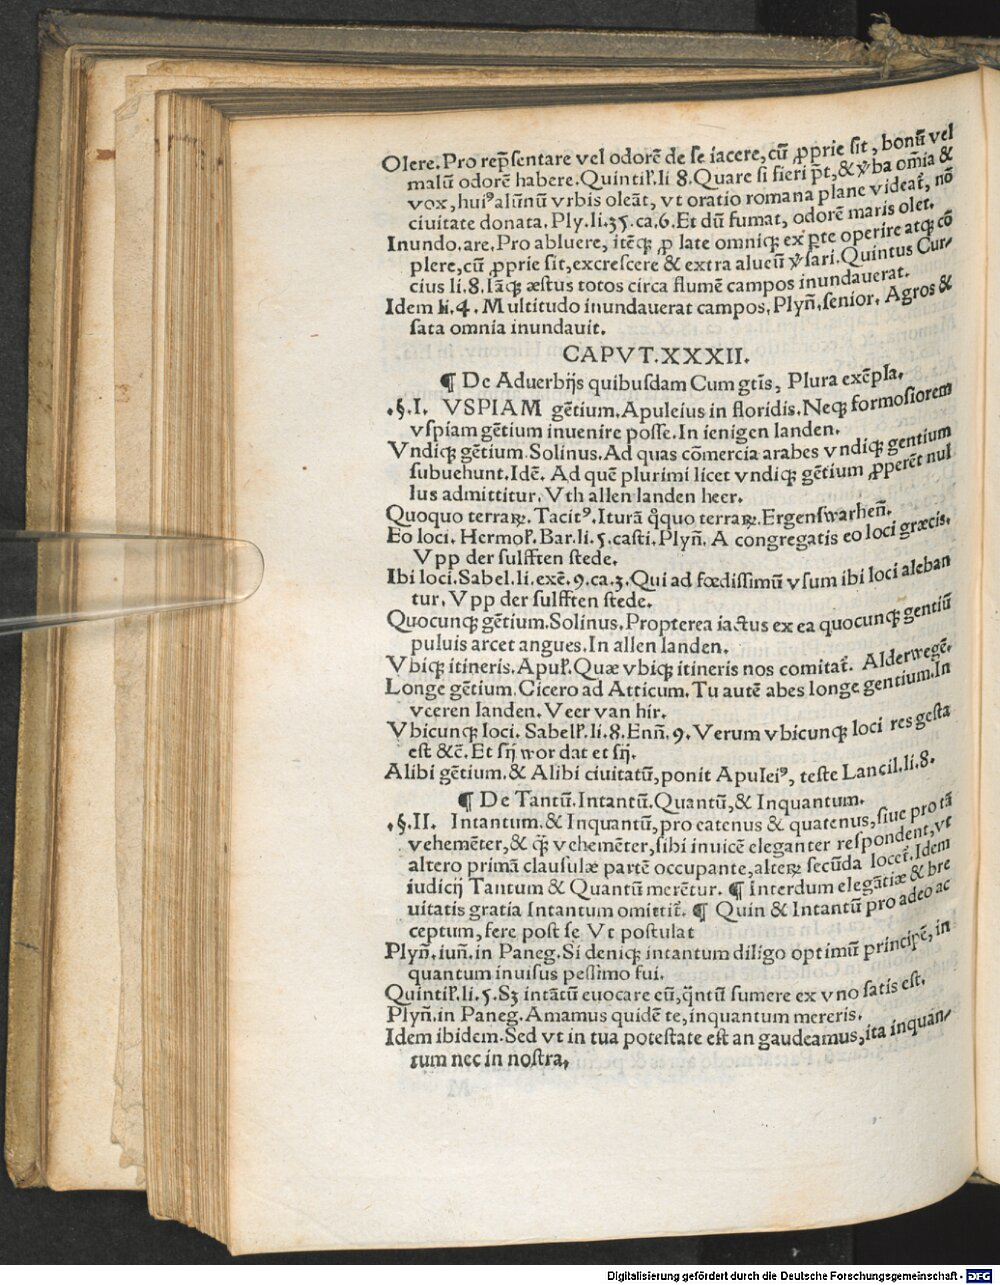 Olere. Pro rep̃sentare vel odorẽ de se iacere, cũ ꝓprie sit, bonũ vel
malũ odorẽ habere. Quintił. li 8. Quare si fieri p̃t, & ꝟba om̃ia &
vox, huiꝰ alũnũ vrbis oleãt, vt oratio romana plane videat̃, nõ
ciuitate donata. Ply. li. 35. ca. 6. Et dũ fumat, odorẽ maris olet.
Inundo. are. Pro abluere, itẽq; ꝓ late omniq; ex p̱te operire atq; cõ
plere, cũ ꝓprie sit, excrescere & extra alueũ ꝟsari. Quintus Cur-
cius li. 8. Iãq; æstus totos circa flumẽ campos inundauerat.
Idem li. 4. Multitudo inundauerat campos, Plyñ. senior. Agros &
sata omnia inundauit.
CAPVT. XXXII.
¶ De Aduerbijs quibusdam Cum gtĩs, Plura exẽpla.
.§. I. VSPIAM gẽtium. Apuleius in floridis. Neq; formosiorem
vspiam gẽtium inuenire posse. In ienigen landen.
Vndiq; gẽtium. Solinus. Ad quas cõmercia arabes vndiq; gentium
subuehunt. Idẽ. Ad quẽ plurimi licet vndiq; gẽtium ꝓperẽt nul
lus admittitur. Vth allen landen heer.
Quoquo terraꝝ. Tacitꝰ. Iturã q̊quo terraꝝ. Ergenswarheñ.
Eo loci. Hermoł. Bar. li. 5. casti. Plyñ. A congregatis eo loci græcis.
Vpp der sulfften stede.
Ibi loci. Sabel. li. exẽ. 9. ca. 3. Qui ad fœdissimũ vsum ibi loci aleban
tur. Vpp der sulfften stede.
Quocunq; gẽtium. Solinus. Propterea iactus ex ea quocunq; gentiũ
puluis arcet angues. In allen landen.
Vbiq; itineris. Apuł. Quæ vbiq; itineris nos comitat̃. Alderwegẽ.
Longe gẽtium. Cicero ad Atticum. Tu autẽ abes longe gentium. In
veeren landen. Veer van hir.
Vbicunq; loci. Sabeł. li. 8. Enñ. 9. Verum vbicunq; loci res gesta
est &c̃. Et sij wor dat et sij.
Alibi gẽtium. & Alibi ciuitatũ, ponit Apuleiꝰ, teste Lancil. li. 8.
¶ De Tantũ. Intantũ. Quantũ, & Inquantum.
.§. II. Intantum. & Inquantũ, pro eatenus & quatenus, siue pro tã
vehemẽter, & q̃ vehemẽter, sibi inuicẽ eleganter respondent, vt
altero primã clausulæ partẽ occupante, alteꝝ secũda locet̃. Idem
iudicij Tantum & Quantũ merẽtur. ¶ Interdum elegãtiæ & bre
uitatis gratia Intantum omittit̃. ¶ Quin & Intantũ pro adeo ac
ceptum, fere post se Vt postulat
Plyñ. iuñ. in Paneg. Si deniq; intantum diligo optimũ principẽ, in
quantum inuisus pessimo fui.
Quintił. li. 5. Sꝫ intãtũ euocare eũ, q̃ntũ sumere ex vno satis est.
Plyñ. in Paneg. Amamus quidẽ te, inquantum mereris.
Idem ibidem. Sed vt in tua potestate est an gaudeamus, ita inquan-
tum nec in nostra,
Digitalisierung gefördert durch die Deutsche Forschungsgemeinschaft - DFG